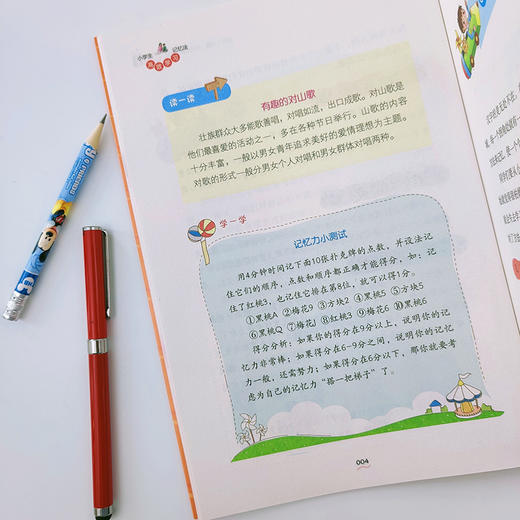 小学生
记忆法
高效学习
读一读
有趣的对山歌
壮族群众大多能歌善唱，对唱如流，出口成歌。对山歌是
他们最喜爱的活动之一，多在各种节日举行。山歌的内容
十分丰富，一般以男女青年追求美好的爱情理想为主题。
对歌的形式一般分男女个人对唱和男女群体对唱两种。
学一学
记忆力小测试
用4分钟时间记下面10张扑克牌的点数，并设法记
住它们的顺序，点数和顺序都正确才能得分，如：记
住了红桃3，也记住它排在第8位，就可以得1分。
①黑桃A ②梅花9 ③方块2 ④黑桃5 ⑤方块5
⑥黑桃Q ⑦梅花J ⑧红桃3 ⑨梅花6 ⑩黑桃6
得分分析：如果你的得分在9分以上，说明你的记
忆力非常棒；如果得分在6-9分之间，说明你的记忆
力一般，还需努力；如果得分在6分以下，那你就要考
虑为自己的记忆力“搭一把梯子”了。
004